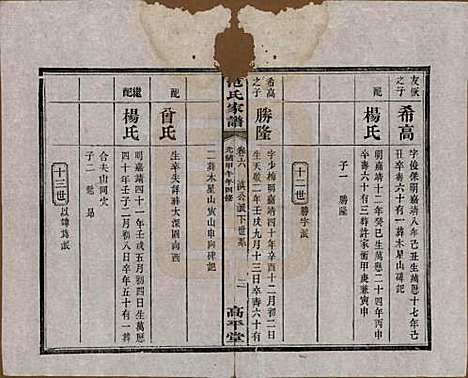 友恢
之子
希高
字俊保明嘉靖八年己丑生萬懋十七年己
丑卒壽六十有一葬木星山碑記
配
楊氏
明嘉靖十二年癸巳生萬懋二十四年丙申
卒壽六十有三葬許家衝甲庚兼寅申
子一
勝隆
十二世
勝字派
希高
之子
勝隆
字少梅明嘉靖四十年辛酉十二月初二日
生天啟二年壬戌九月十三日卒壽六十有
范氏家譜
卷之六
淇公派下世系
光緒甲午年四修
高平堂
二葬木星山寅山申向碑記
配
曾氏
生卒失詳葬大深園南西
繼配
楊氏
明嘉靖四十一年壬戌五月初四日生萬懋
四十年壬子二月初八日卒年五十有一葬
合夫山同穴
子二
十三世
以錦為派